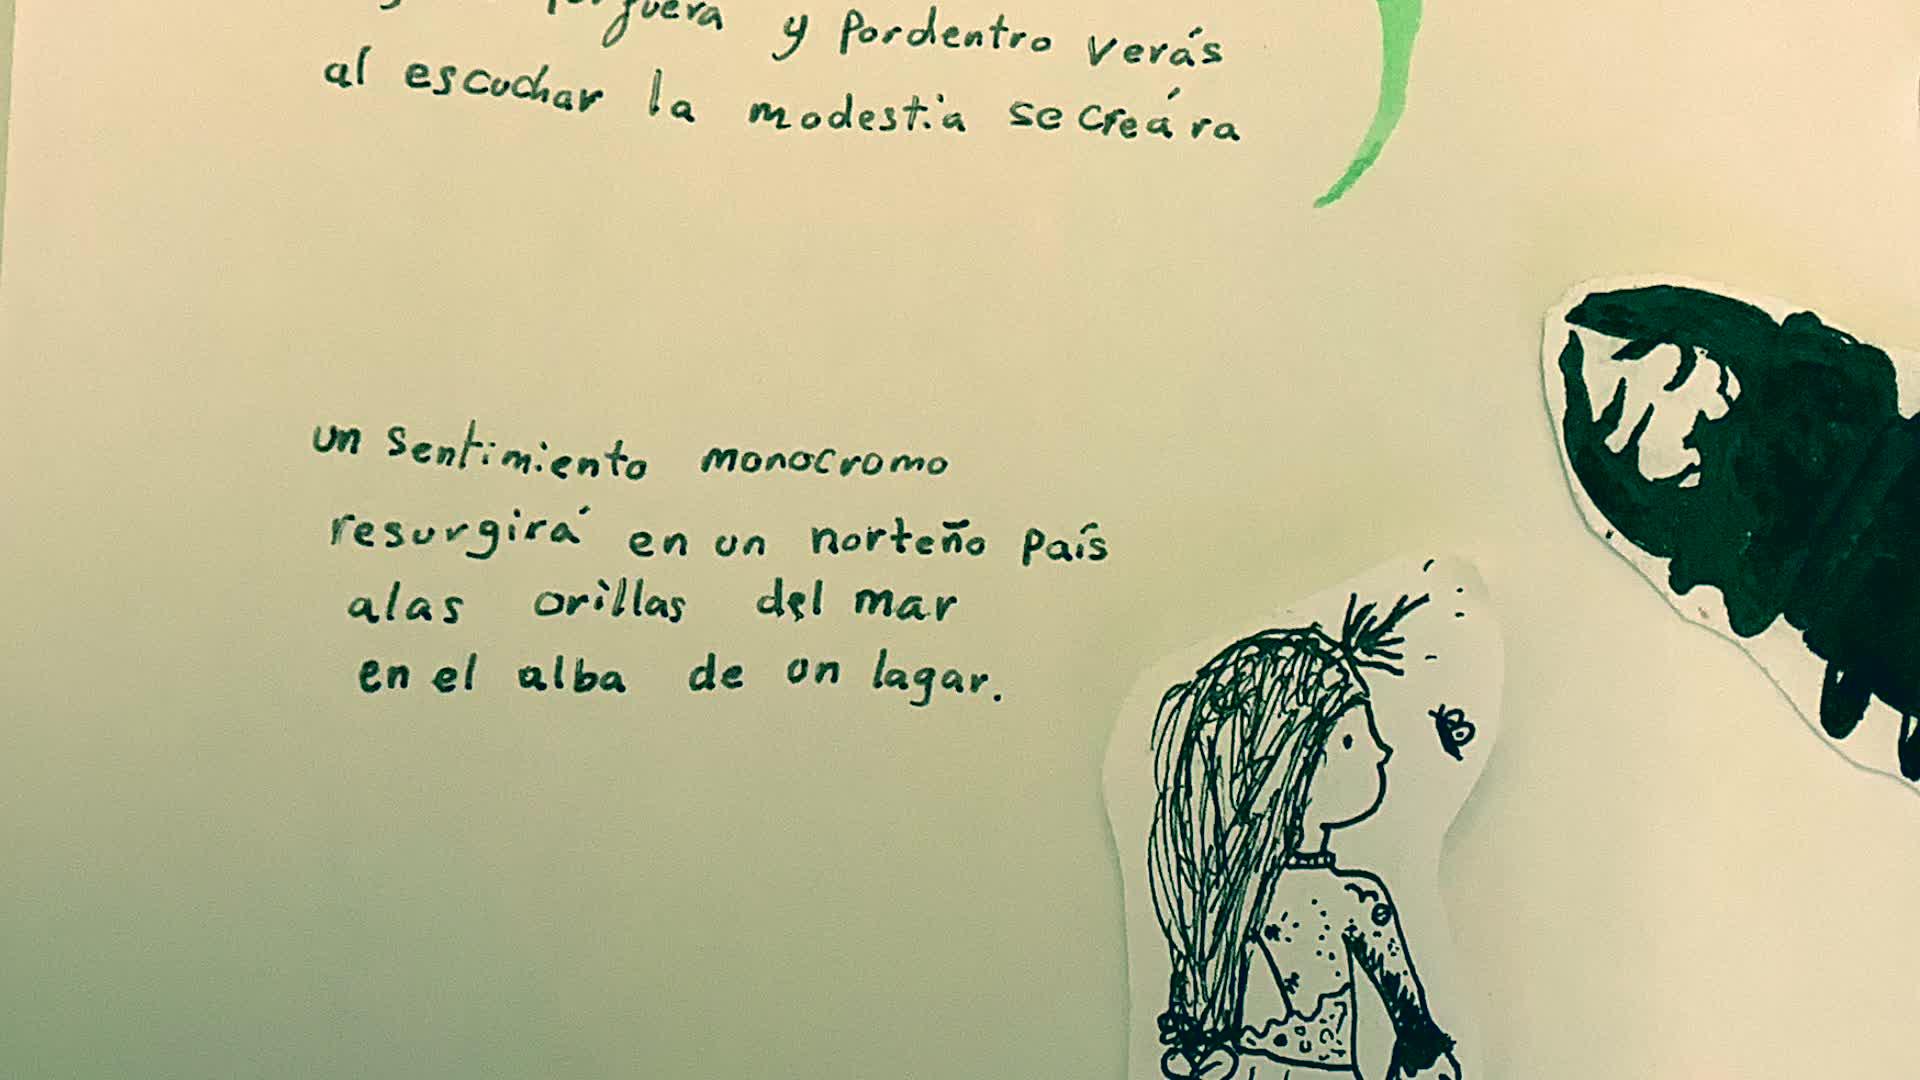 y pordentro verás
al escuchar la modestia se creára
un sentimiento monocromo
resurgirá en un norteño país
alas orillas del mar
en el alba de un lagar.